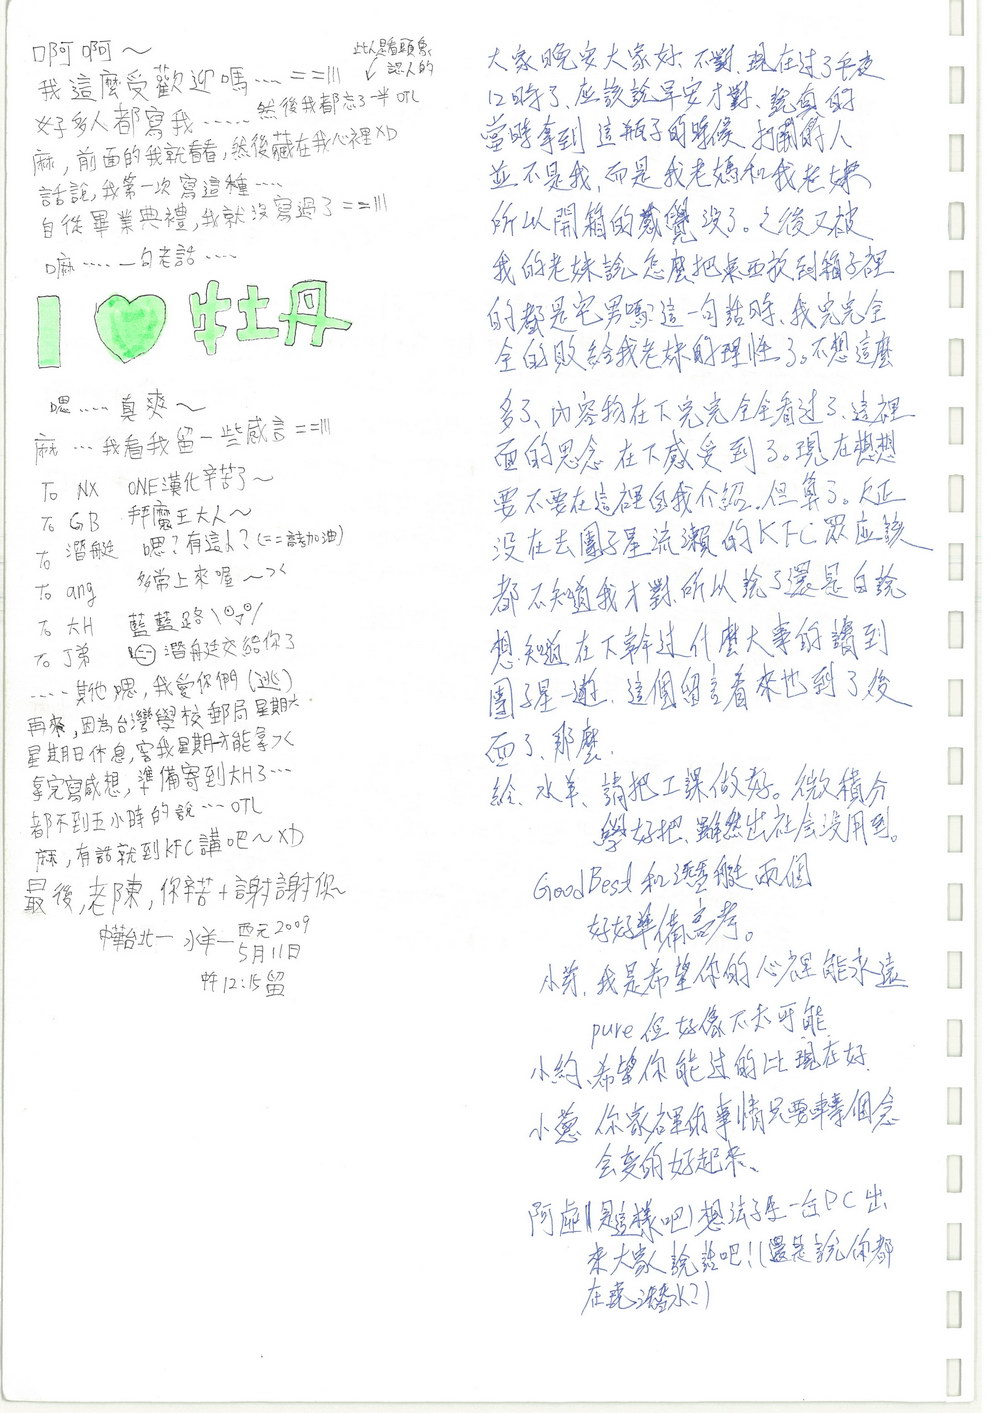 啊啊～
此人是看頭象
認人的
我這麼受歡迎嗎.... ==|||
好多人都寫我..... 然後我都忘了一半 OTL
麻，前面的我就看看，然後藏在我心裡XD
話說，我第一次寫這種....
自從畢業典禮，我就沒寫過了==|||
嘛.... 一句老話....
I ♥ 牡丹
嗯.... 真爽～
麻...我看我留一些感言==|||
To NX ONE漢化辛苦了～
To GB 拜魔王大人～
To 潛艇 嗯？有這人？(==請加油)
To ang 多常上來喔～
To 大H 藍藍路
To J弟 潛艇交給你了
....其他嗯，我愛你們(逃)
再來，因為台灣學校郵局星期六
星期日休息，害我星期一才能拿
拿完寫感想，準備寄到大H了...
都不到五小時的說... OTL
麻，有話就到KFC講吧～XD
最後，老陳，你辛苦+謝謝你～
中華台北—水羊—西元2009
5月11日
12:15留
大家晚安大家好.不對.現在过了半夜
12時了、应該說早安才對、說真的
當時拿到這瓶子的時候 打開的人
並不是我.而是我老媽和我老妹
所以開箱的感覺没了。之後又被
我的老妹說怎麼把東西放到箱子裡
的都是宅男嗎?這一句話時、我完完全
全的敗給我老妹的理性了。不想這麼
多了、內容物在下完完全全看过了、這裡
面的思念 在下感受到了。現在想想
要不要在這裡自我介紹、但算了。反正
没在去團子星流瀨的KFC眾应該
都不知道我才對.所以說了還是白說
想知道在下幹过什麼大事的請到
團子星一遊. 這個留言看來也到了後
面了、那麼.
給、水羊、請把工課做好。微積分
學好把.雖然出社会没用到。
GoodBest和潛艇兩個
好好準備高考。
小芽、我是希望你的心裡能永遠
pure 但好像不太可能
小約、希望你能过的比現在好
小蔥 你家裡的事情只要轉個念
会变的好起來、
阿虛(是這樣吧)想法子生一台PC出
來大家說話吧!(還是說你都
在潛水?)